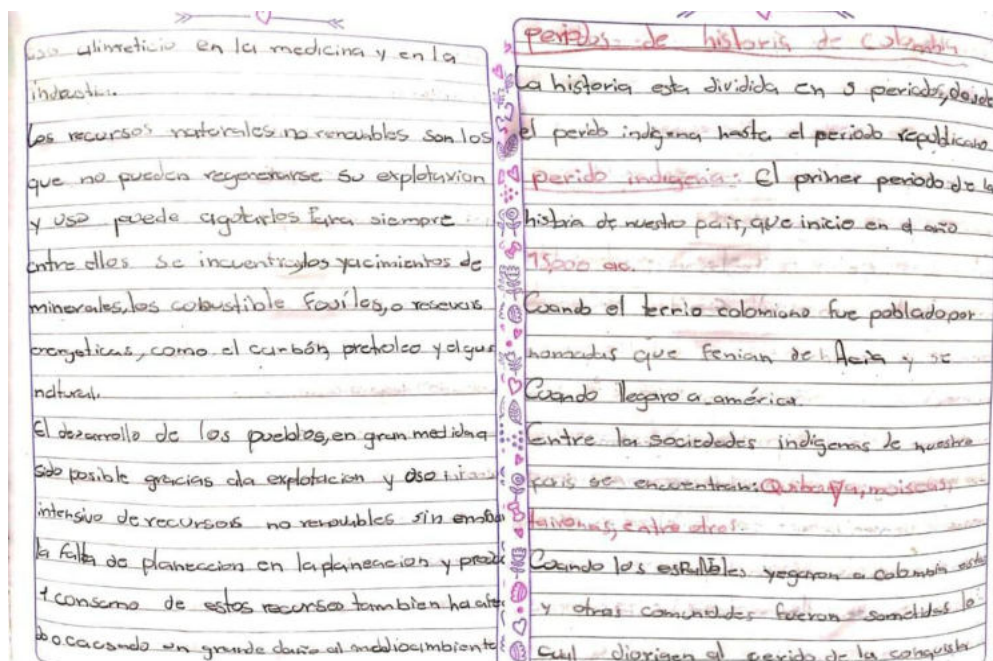 uso alimreticio en la medicina y en la
indbustri.
Los recursos natorales no renovbles son los
que no pueden regenerarse su explotavion
y uso puede agotarlos Para siempre
entre ellos se incuentraglos yacimientos de
minerales, los cobustible fosiles, o resevas
energeticas, como el carbón pretoleo y el gas
natural.
El desarrollo de los pueblos, en gran medida a
sido posible gracias ala explotacion y uso
intensivo de recursos no renovbles sin embar
la falta de planeccion en la plaineacion y
consumo de estos recursos tambien ha
cacasndo un grande daño al mediocimbiente
periodos de historis de Colombia
La historia esta dividida en 3 periodos, desde
el perido indigena hasta el periodo republicano
perido indigenia: El primer periodo de la
histria de nuestro pais, que inicio en el año
15,000 ac.
Cuando el terrio colomiano fue poblado por
nomadas que Tenian de Acia y se
Cuando llegaro a américa
Entre las sociedades indigenas de nuestro
pais se encuentran: Quibaya, moiscas,
taironas, entre otros.
Cuando los españoles yegaron a colombia
y otras comunidades fueron sometidas lo
cual diorigen al perido de la conquista